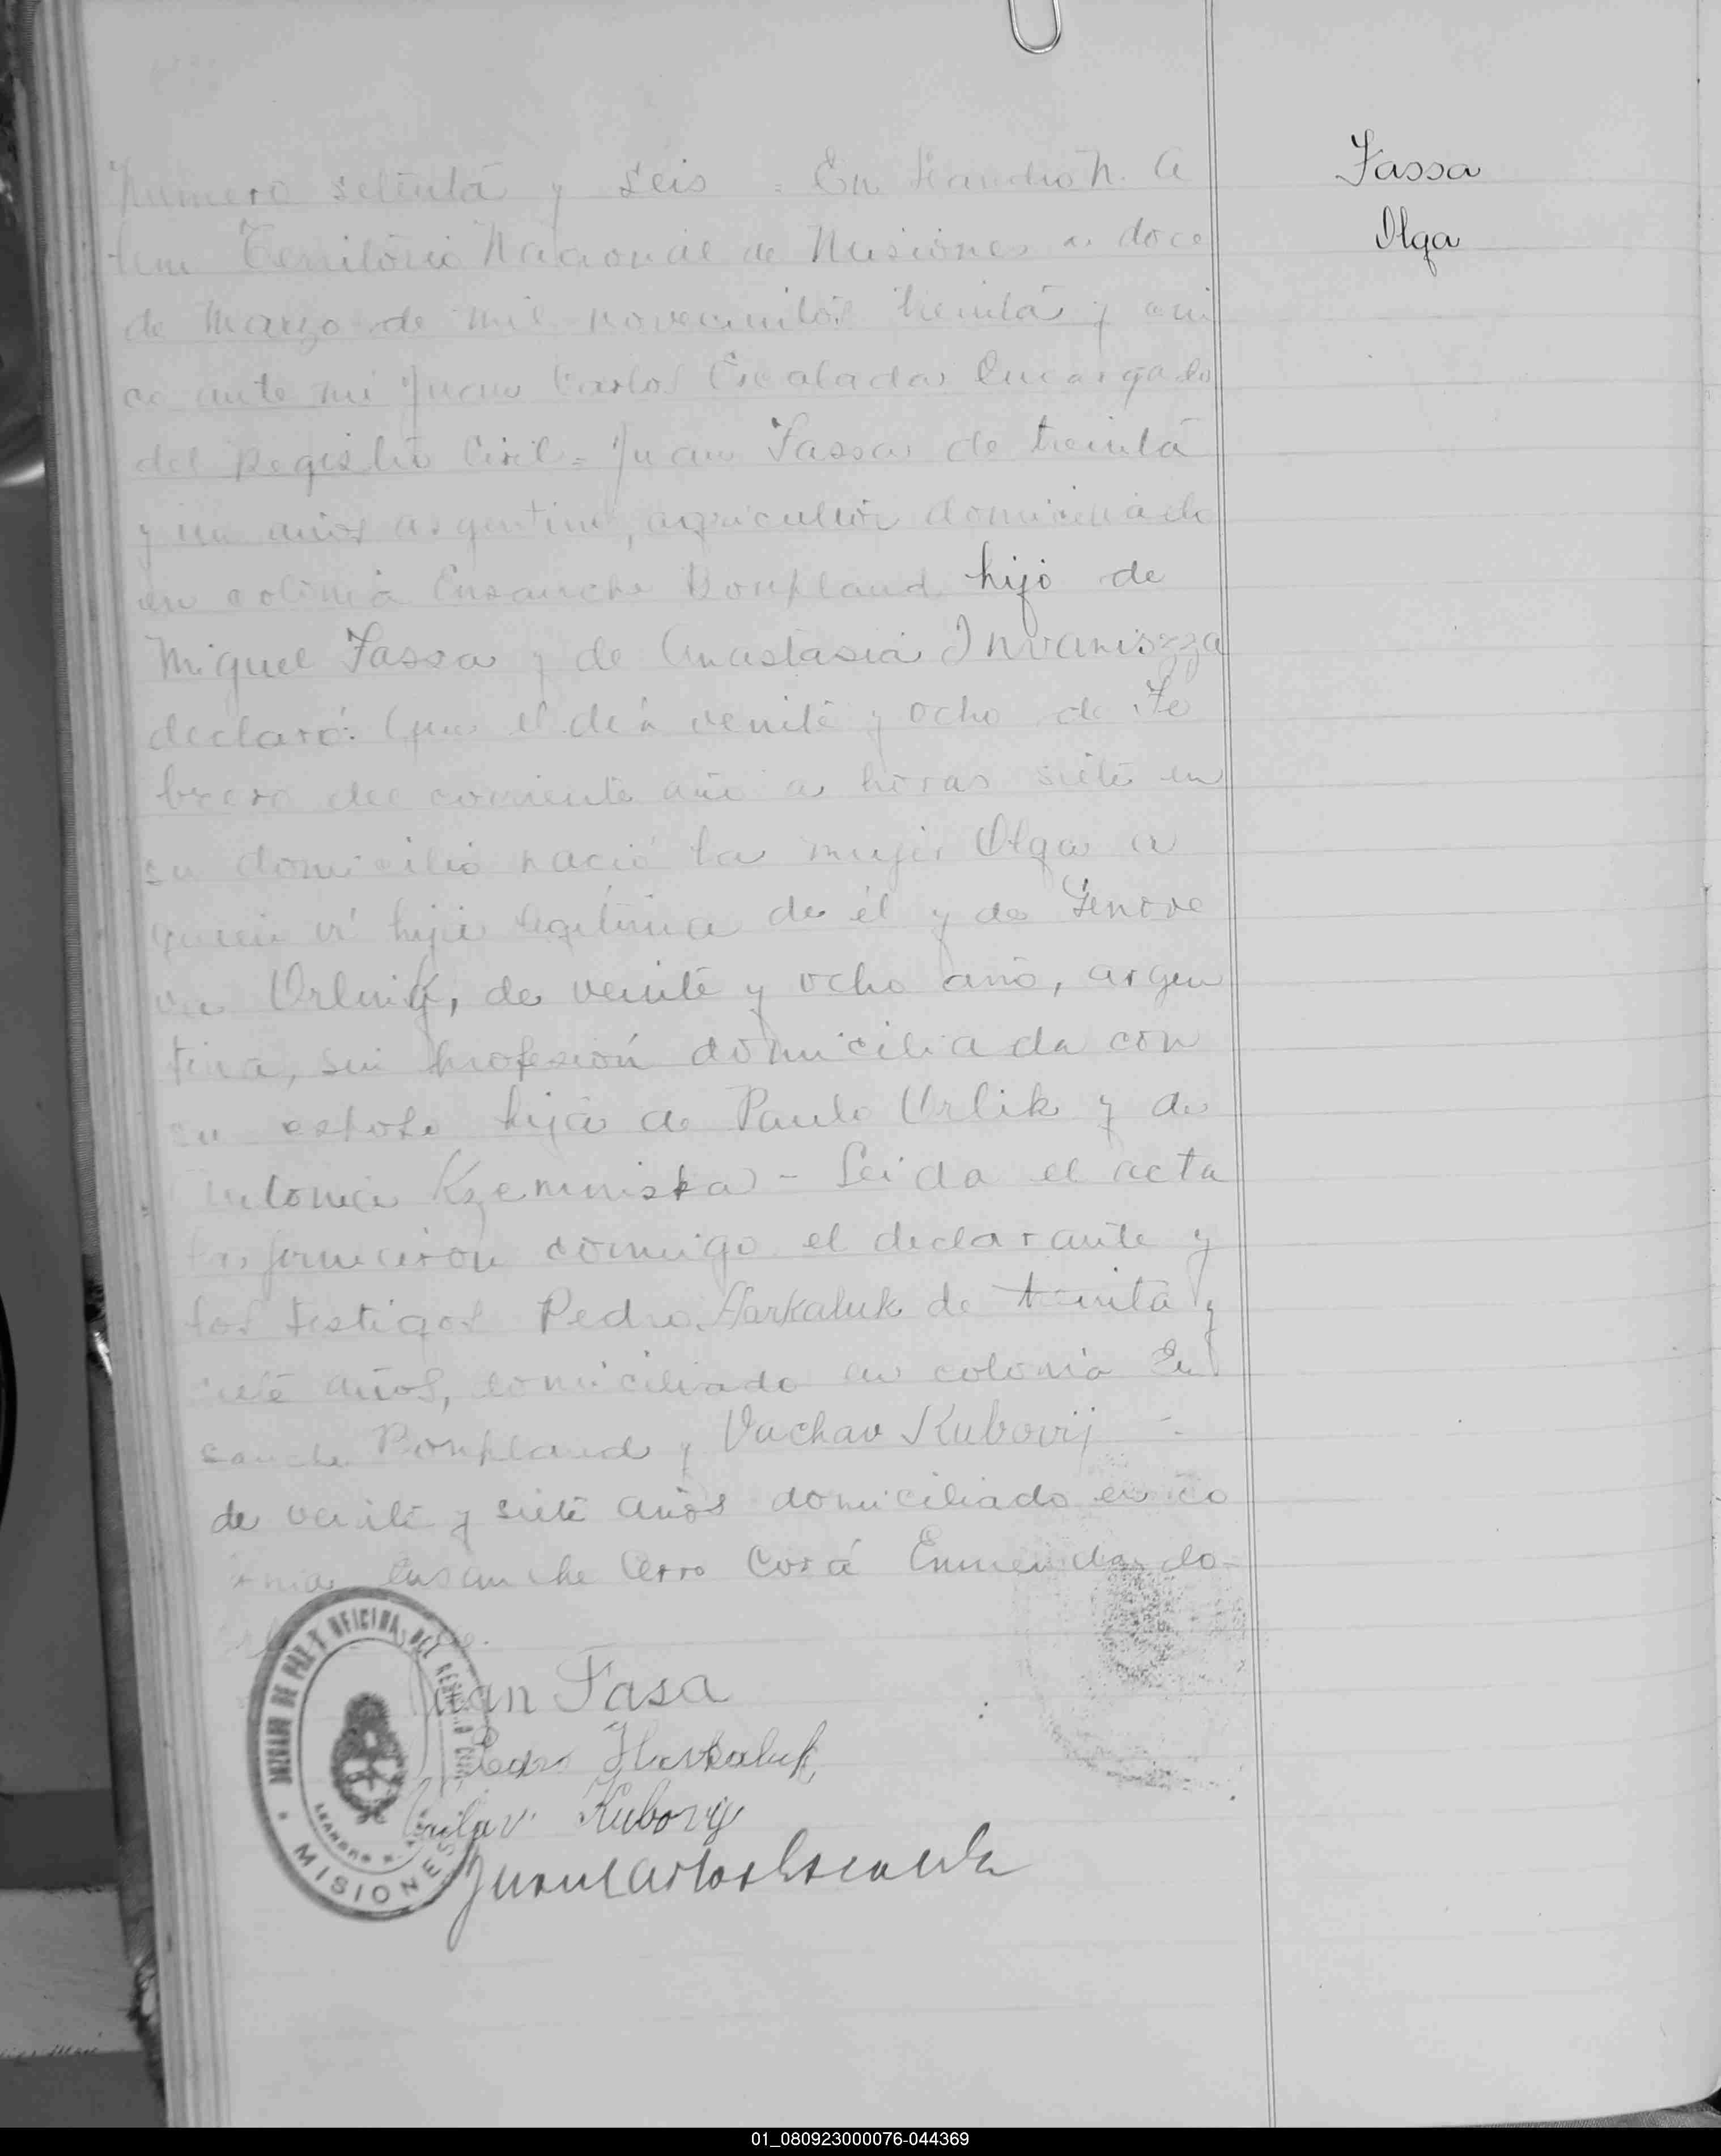 Fassa
Olga
Numero setenta y seis = En Leandro N. A
lem Territorio Nacional de Misiones a doce
de marzo de mil novecientos treinta y cin
co ante mi Juan Carlos Escalada Encargado
del Registro Civil = Juan Fassa de treinta
y un años argentino, agricultor domiciliado
en colonia Ensanche Bonpland hijo de
Miguel Fassa y de Anastasia Invaniszza
declaró: Que el día veinte y ocho de Fe
brero del corriente año a horas siete en
su domicilio nació la mujer Olga a
quien vi hija legitima de él y de Genove
va Urlnik, de veinte y ocho año, argen
tina, sin profesión domiciliada con
su esposo hija de Paulo Urlik y de
Antonia Kzemniska - Leida el acta
la firmaron conmigo el declarante y
los testigos Pedro Harkaluk de treinta y
siete años, domiciliado en colonia En
sanche Bonpland y Vachav Kubovij =
de veinte y siete años domiciliado en co
lonia Ensanche Cerro Corá Enmendado-
Juan Fasa
Pedro Harkaluk
Kubovij
Juan Carlos Escalada
JUZGADO DE PAZ Y OFICINA DEL REGISTRO CIVIL
LEANDRO N.
MISIONES
01_080923000076-044369